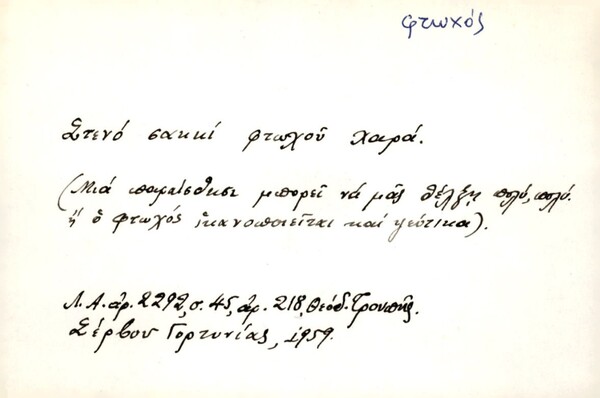 φτωχός
Στενό σακκί φτωχοῦ χαρά.
(Μιά παραίσθησι μπορεῖ νά μᾶς θέλξῃ πολύ, πολύ.
ἤ ὁ φτωχός ἱκανοποιεῖται καί ψεύτικα).
Λ.Α. ἀρ. 2292, σ. 45, ἀρ. 218, Θεόδ. Τρουπῆς.
Σέρβου Γορτυνίας, 1959.